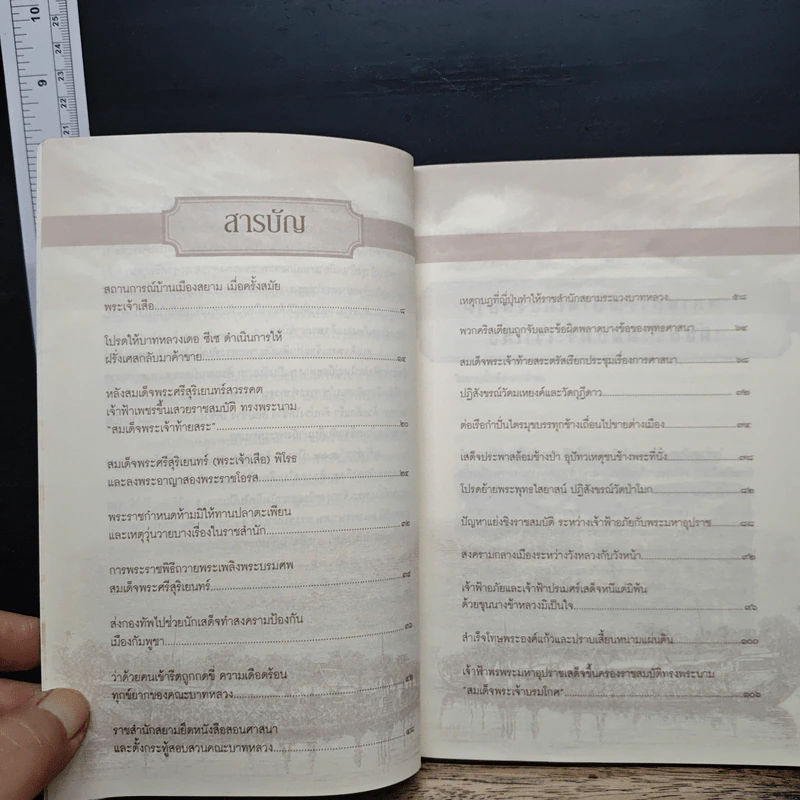 10
9
25
24
23
22
21
สารบัญ
สถานการณ์บ้านเมืองสยาม เมื่อครั้งสมัย
พระเจ้าเสือ ๘
โปรดให้บาทหลวงเดอ ซีเซ ดำเนินการให้
ฝรั่งเศสกลับมาค้าขาย ๑๔
หลังสมเด็จพระศรีสุริเยนทร์สวรรคต
เจ้าฟ้าเพชรขึ้นเสวยราชสมบัติ ทรงพระนาม
"สมเด็จพระเจ้าท้ายสระ" ๒๐
สมเด็จพระศรีสุริเยนทร์ (พระเจ้าเสือ) พิโรธ
และลงพระอาญาสองพระราชโอรส ๒๕
พระราชกำหนดห้ามมิให้ทานปลาตะเพียน
และเหตุวุ่นวายบางเรื่องในราชสำนัก ๓๒
การพระราชพิธีถวายพระเพลิงพระบรมศพ
สมเด็จพระศรีสุริเยนทร์ ๓๔
ส่งกองทัพไปช่วยนักเสด็จทำสงครามป้องกัน
เมืองกัมพูชา ๓๖
ว่าด้วยคนเข้ารีตถูกกดขี่ ความเดือดร้อน
ทุกข์ยากของคณะบาทหลวง
ราชสำนักสยามยึดหนังสือสอนศาสนา
และตั้งกระทู้สอบสวนคณะบาทหลวง
เหตุกบฏที่ญี่ปุ่นทำให้ราชสำนักสยามระแวงบาทหลวง ๕๘
พวกคริสเตียนถูกจับและข้อผิดพลาดบางข้อของพุทธศาสนา ๖๔
สมเด็จพระเจ้าท้ายสระตรัสเรียกประชุมเรื่องการศาสนา ๖๘
ปฏิสังขรณ์วัดมเหยงค์และวัดกุฎีดาว ๗๒
ต่อเรือกำปั่นไตรมุขบรรทุกช้างเถื่อนไปขายต่างเมือง ๗๔
เสด็จประพาสล้อมช้างป่า อุปัทวเหตุชนช้างพระที่นั่ง ๗๘
โปรดย้ายพระพุทธไสยาสน์ ปฏิสังขรณ์วัดป่าโมก ๘๒
ปัญหาแย่งชิงราชสมบัติ ระหว่างเจ้าฟ้าอภัยกับพระมหาอุปราช ๘๘
สงครามกลางเมืองระหว่างวังหลวงกับวังหน้า ๙๒
เจ้าฟ้าอภัยและเจ้าฟ้าปรเมศร์เสด็จหนีแต่มิพ้น
ด้วยขุนนางข้าหลวงมิเป็นใจ ๙๖
สำเร็จโทษพระองค์แก้วและปราบเสี้ยนหนามแผ่นดิน ๑๐๐
เจ้าฟ้าพรพระมหาอุปราชเสด็จขึ้นครองราชสมบัติทรงพระนาม
"สมเด็จพระเจ้าบรมโกศ" ๑๐๖